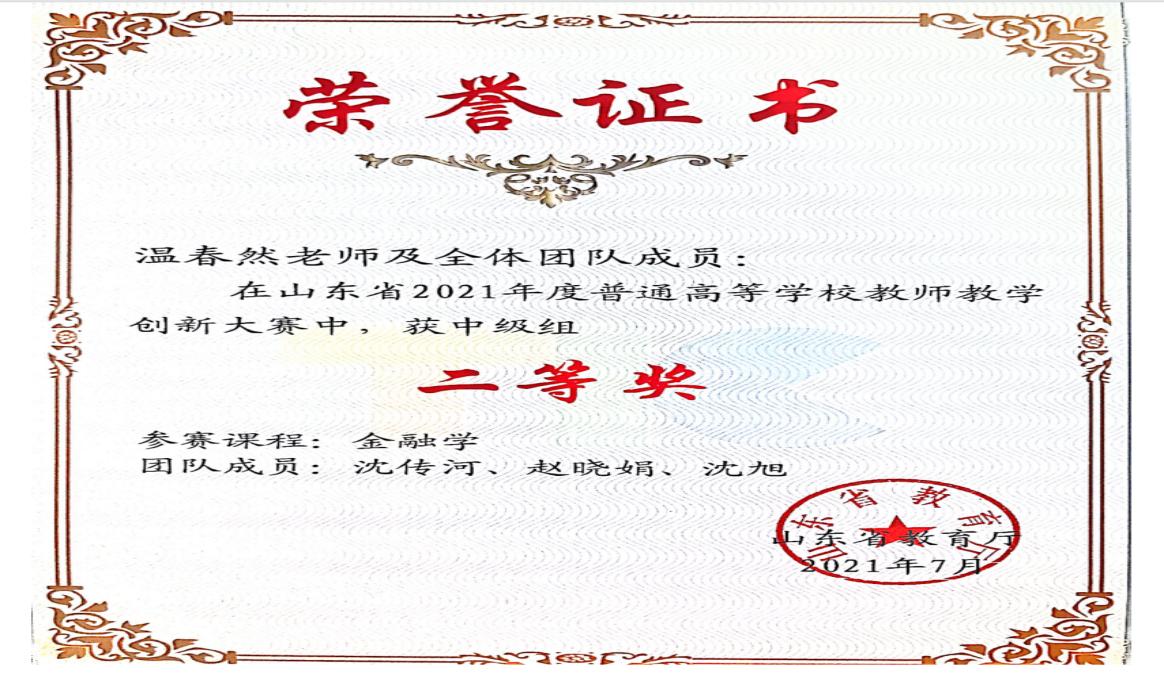 荣誉证书
温春然老师及全体团队成员：
在山东省2021年度普通高等学校教师教学
创新大赛中，获中级组
二等奖
参赛课程： 金融学
团队成员： 沈传河、赵晓娟、沈旭
山东省教育厅
山东省教育厅
2021年7月